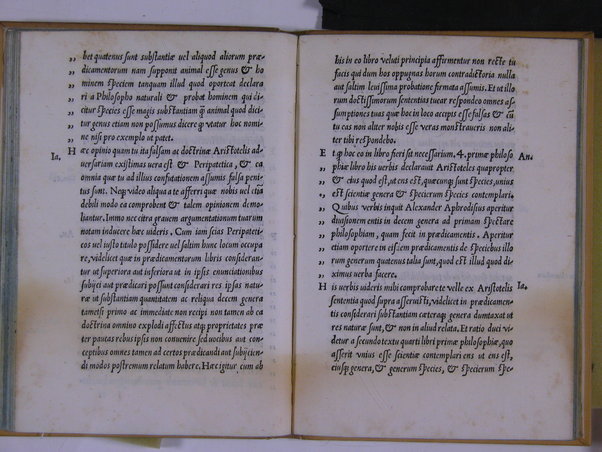 „ bet quatenus sunt substantiæ uel aliquod aliorum præ
„ dicamentorum nam supponit animal esse genus & ho
„ minem speciem tanquam illud quod oporteat declara
„ ri a Philosopho naturali & probat hominem qui di
„ citur species esse magis substantiam q̃ animal quod dici
„ tur genus etiam non possumus dicere q̃ utatur hoc nomi
„ ne nisi pro exemplo ut patet.
Ia. Hæc opinio quam tu ita falsam ac doctrinæ Aristotelis ad
uersariam existimas uera est & Peripatetica, & ea
omnia quæ tu ad illius confutationem assumis falsa peni
tus sunt. Neq; video aliqua a te afferri quæ nobis uel
debili modo ea comprobent & talem opinionem demo
liantur. Immo nec citra grauem argumentationum tuarum
notam inducere hæc uideris. Cum iam scias Peripateti
cos uel iusto titulo possidere uel saltim hunc locum occupa
re, videlicet quod in prædicamentorum libris consideran
tur ut superiora aut inferiora ut in ipsis enunciationibus
subijci aut prædicari possunt considerari res ipsas natu
ræ ut substantiam quantitatem ac reliqua decem genera
tametsi primo ac immediate non recipi non tamen ab ea
doctrina omnino explodi affectus atq; proprietates præ
ter paucas rebus ipsis non conuenire seducibus aut con
ceptibus omnes tamen ad certos prædicandi aut subijcien
di modos postremum relatum habere. Hæc igitur cum ab
his in eo libro veluti principia affirmentur non recte tu
facis qui dum hos oppugnas horum contradictoria nulla
aut saltim leuissima probatione firmata assumis. Et ut illo
rum doctissimorum sententias tuear respondeo omnes as
sumptiones tuas quæ hoc in loco accipis esse falsas &
tu eas non aliter nobis esse veras monstraueris non ali
ter tibi respondebo.
Et q̃ hoc eo in libro fieri sit necessarium, 4. primæ philoso An.
„ phiæ libro his verbis declarauit Aristoteles quapropter,
„ & eius quod est, ut ens est, quæcunq; sunt species, unius
„ est scientiæ genere & specierum species contemplari.
„ Quibus verbis inquit Alexander Aphrodisius aperitur
„ diuisionem entis in decem genera ad primam spectare
„ philosophiam, quam fecit in prædicamentis. Aperitur
„ etiam oportere in eisdem prædicamentis de speciebus illo
„ rum generum quatenus talia sunt, quod est illud quod di
„ ximus verba facere.
His uerbis uideris mihi comprobare te velle ex Aristotelis Ia.
sententia quod supra asseruisti, videlicet in prædicamen
tis considerari substantiam cæteraq; genera duntaxat ut
res naturæ sunt, & non in aliud relata. Et ratio duci vi
detur a secundo textu quarti libri primæ philosophiæ, quo
asserit vnius esse scientiæ contemplari ens ut ens est,
eiusq; genera, & generum species, & specierum spe-